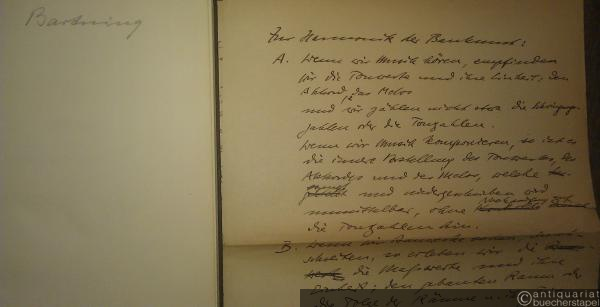 Bartning
Zur Harmonik der Baukunst:
A. Wenn wir Musik hören, empfinden
wir die Tonwerte und ihre Einheit: den
Akkord, das Melos
und wir zählen nicht etwa die Schwingungs-
zahlen oder die Tonzahlen.
Wenn wir Musik komponieren, so ist es
die innere Vorstellung des Tonwertes, des
Akkordes und des Melos, welche
und niedergeschrieben wird
unmittelbar, ohne
die Tonzahlen hin.
B. Wenn wir Bauwerke
schreiten, so erleben wir die
die Masswerte und ihre
Einheit: den gebauten Raum oder
die Folge der Räume
antiquariat
buecherstapel